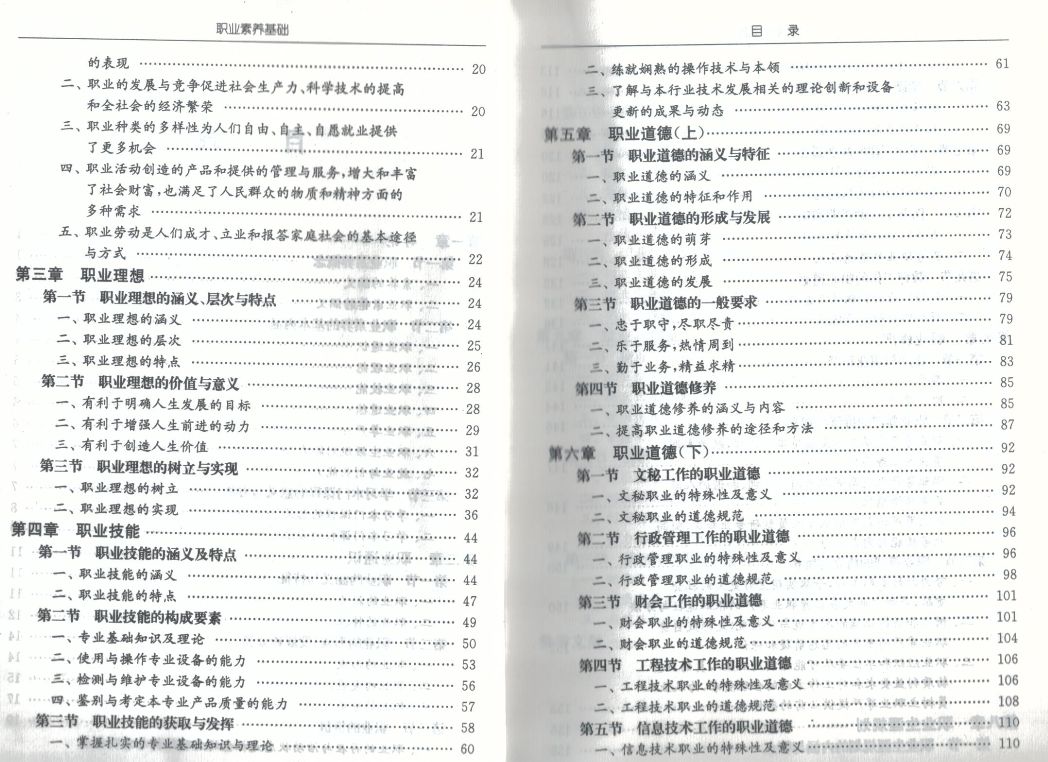 职业素养基础
的表现 …… 20
二、职业的发展与竞争促进社会生产力、科学技术的提高
和全社会的经济繁荣 …… 20
三、职业种类的多样性为人们自由、自主、自愿就业提供
了更多机会 …… 21
四、职业活动创造的产品和提供的管理与服务,增大和丰富
了社会财富,也满足了人民群众的物质和精神方面的
多种需求 …… 21
五、职业劳动是人们成才、立业和报答家庭社会的基本途径
与方式 …… 22
第三章 职业理想 …… 24
第一节 职业理想的涵义、层次与特点 …… 24
一、职业理想的涵义 …… 24
二、职业理想的层次 …… 25
三、职业理想的特点 …… 26
第二节 职业理想的价值与意义 …… 28
一、有利于明确人生发展的目标 …… 28
二、有利于增强人生前进的动力 …… 29
三、有利于创造人生价值 …… 31
第三节 职业理想的树立与实现 …… 32
一、职业理想的树立 …… 32
二、职业理想的实现 …… 36
第四章 职业技能 …… 44
第一节 职业技能的涵义及特点 …… 44
一、职业技能的涵义 …… 44
二、职业技能的特点 …… 47
第二节 职业技能的构成要素 …… 49
一、专业基础知识及理论 …… 50
二、使用与操作专业设备的能力 …… 53
三、检测与维护专业设备的能力 …… 56
四、鉴别与考定本专业产品质量的能力 …… 57
第三节 职业技能的获取与发挥 …… 58
一、掌握扎实的专业基础知识与理论 …… 60
目 录
二、练就娴熟的操作技术与本领 …… 61
三、了解与本行业技术发展相关的理论创新和设备
更新的成果与动态 …… 63
第五章 职业道德(上) …… 69
第一节 职业道德的涵义与特征 …… 69
一、职业道德的涵义 …… 69
二、职业道德的特征和作用 …… 70
第二节 职业道德的形成与发展 …… 72
一、职业道德的萌芽 …… 73
二、职业道德的形成 …… 74
三、职业道德的发展 …… 75
第三节 职业道德的一般要求 …… 79
一、忠于职守,尽职尽责 …… 79
二、乐于服务,热情周到 …… 81
三、勤于业务,精益求精 …… 83
第四节 职业道德修养 …… 85
一、职业道德修养的涵义与内容 …… 85
二、提高职业道德修养的途径和方法 …… 87
第六章 职业道德(下) …… 92
第一节 文秘工作的职业道德 …… 92
一、文秘职业的特殊性及意义 …… 92
二、文秘职业的道德规范 …… 94
第二节 行政管理工作的职业道德 …… 96
一、行政管理职业的特殊性及意义 …… 96
二、行政管理职业的道德规范 …… 98
第三节 财会工作的职业道德 …… 101
一、财会职业的特殊性及意义 …… 101
二、财会职业的道德规范 …… 104
第四节 工程技术工作的职业道德 …… 106
一、工程技术职业的特殊性及意义 …… 106
二、工程技术职业的道德规范 …… 108
第五节 信息技术工作的职业道德 …… 110
一、信息技术职业的特殊性及意义 …… 110